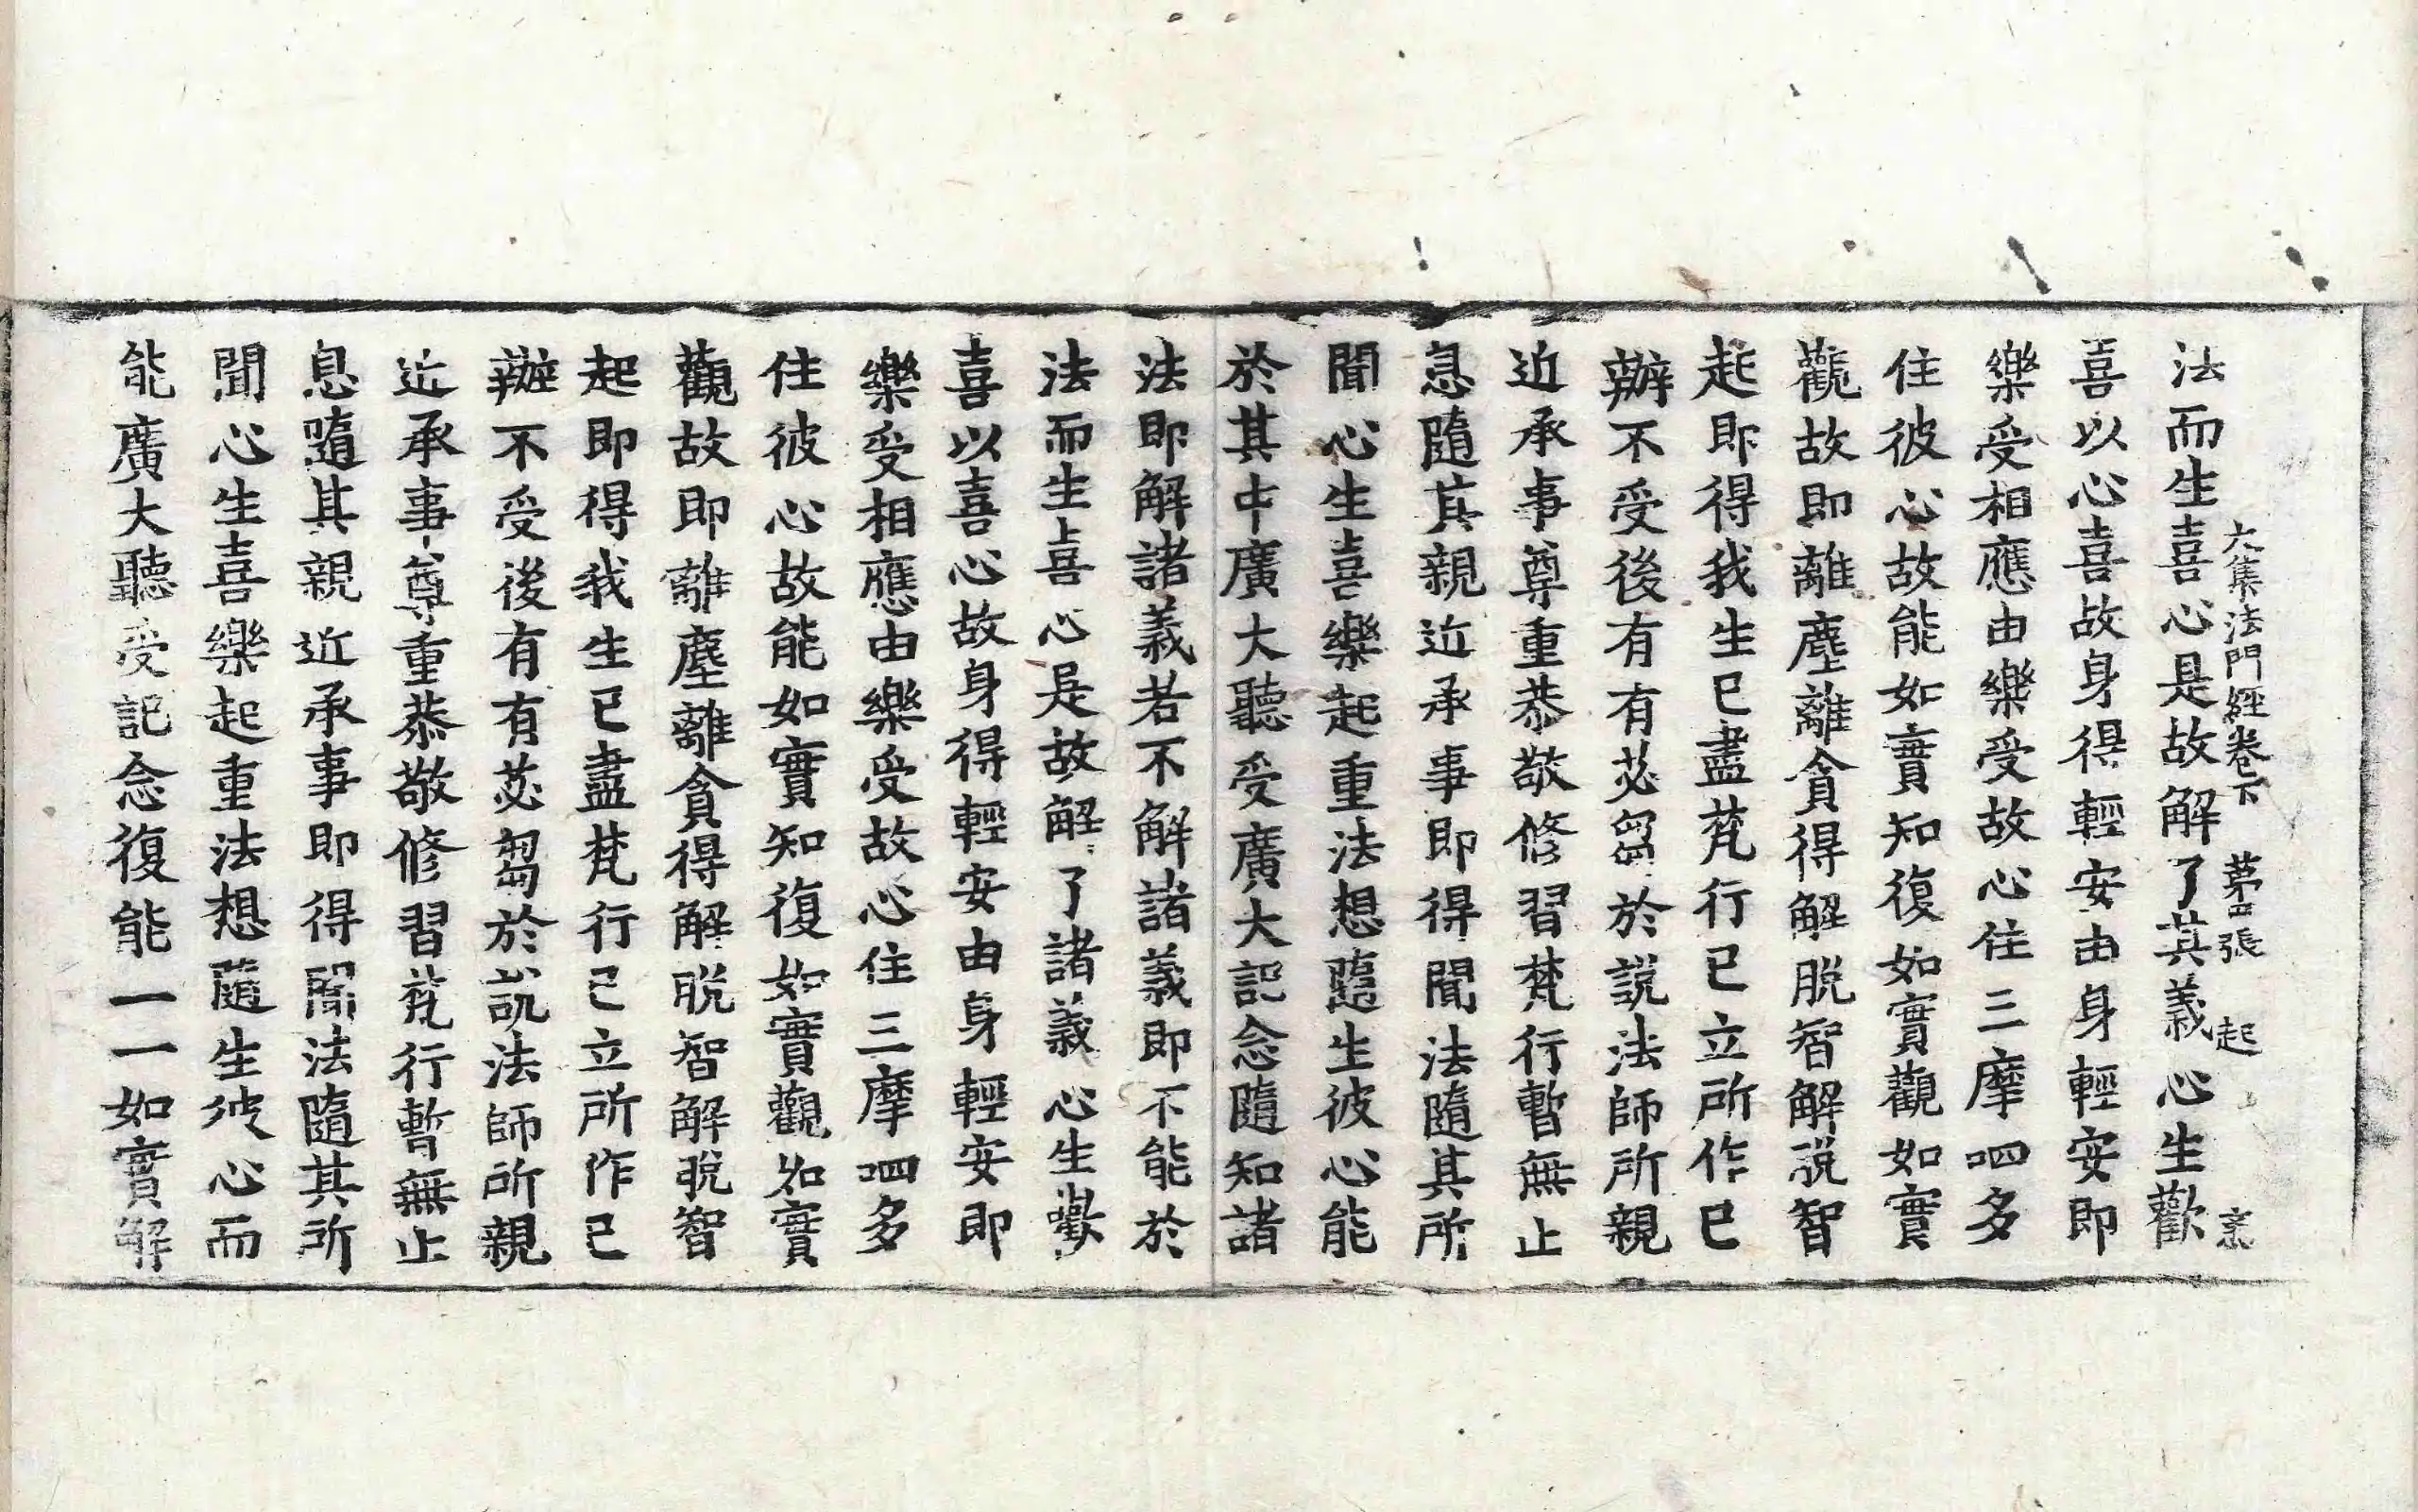 法而生喜心是故解了其義心生歡
大集法門經卷下 第四張 起
喜以心喜故身得輕安由身輕安即
樂受相應由樂受故心住三摩呬多
住彼心故能如實知復如實觀如實
觀故即離塵離貪得解脫智解脫智
起即得我生已盡梵行已立所作已
辦不受後有有苾芻於說法師所親
近承事尊重恭敬修習梵行暫無止
息隨其親近承事即得聞法隨其所
聞心生喜樂起重法想隨生彼心能
於其中廣大聽受廣大記念隨知諸
法即解諸義若不解諸義即不能於
法而生喜心是故解了諸義心生歡
喜以喜心故身得輕安由身輕安即
樂受相應由樂受故心住三摩呬多
住彼心故能如實知復如實觀如實
觀故即離塵離貪得解脫智解脫智
起即得我生已盡梵行已立所作已
辦不受後有有苾芻於說法師所親
近承事尊重恭敬修習梵行暫無止
息隨其親近承事即得聞法隨其所
聞心生喜樂起重法想隨生彼心而
能廣大聽受記念復能一一如實解